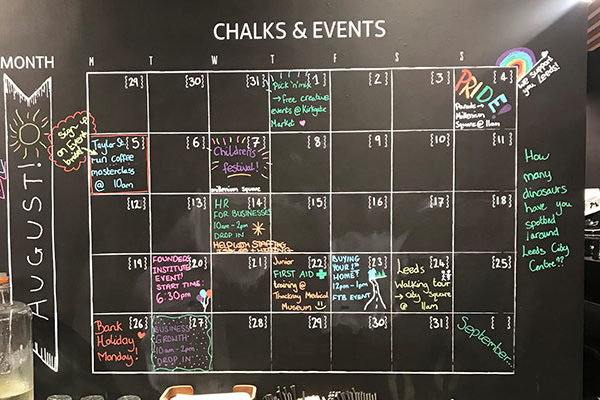 CHALKS & EVENTS
MONTH
AUGUST!
M T W T F S S
Sign up on Event brite!
We support you Leeds!
{29} {30} {31} {1} {2} {3} {4}
Pick 'n' mix
→ free creative
events @ Kirkgate
Market
PRIDE!
Parade →
Millennium
Square @ 11am
{5} {6} {7} {8} {9} {10} {11}
Taylor St.
run coffee
masterclass
@ 10am
Children's
festival!
millennium square
{12} {13} {14} {15} {16} {17} {18}
HR
FOR BUSINESSES
10am - 2pm
DROP IN
HEIRLOOM STAFFING
{19} {20} {21} {22} {23} {24} {25}
FOUNDERS
INSTITUTE
EVENT!
START TIME:
6:30pm
Junior
FIRST AID
training @
Thackray Medical
Museum
BUYING
YOUR 1st
HOME?
12pm - 1pm
FTB EVENT
Leeds
Walking tour
→ City Square
@ 11am
{26} {27} {28} {29} {30} {31} { }
Bank
Holiday
Monday!
BUSINESS
GROWTH
10am - 2pm
DROP IN
September...
How
many
dinosaurs
have you
spotted
around
Leeds City
Centre??